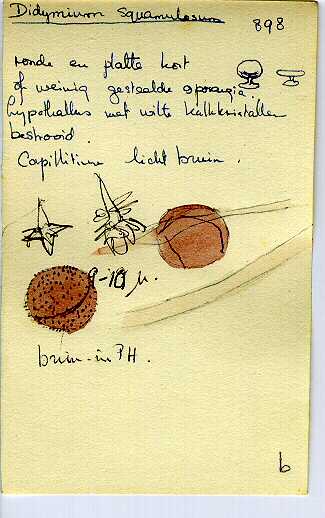 Didymium squamulosum
898
ronde en platte kort
of weinig gesteelde sporangia.
hypothallus met witte kalkkristallen
bestrooid.
Capillitium licht bruin.
9-10 µ.
bruin-in PH.
b